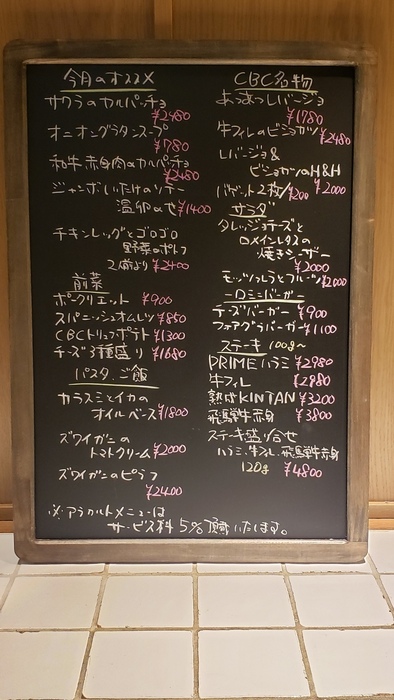 今月のオススメ
サクラのカルパッチョ
¥2480
オニオングラタンスープ
¥780
和牛赤身肉のカルパッチョ
¥2480
ジャンボしいたけのソテー
温卵のせ ¥1400
チキンレッグとゴロゴロ
野菜のポトフ
2人前より ¥2400
前菜
ポークリエット ¥900
スパニッシュオムレツ ¥850
CBCトリュフポテト ¥1300
チーズ3種盛り ¥1680
パスタ、ご飯
カラスミとイカの
オイルベース ¥1800
ズワイガニの
トマトクリーム ¥2000
ズワイガニのピラフ
¥2400
※アラカルトメニューは
サービス料5%頂戴いたします。
CBC名物
あつあつレバージョ
¥1780
牛フィレのビジョカツ ¥2480
レバージョ&
ビジョカツのH&H
バケット2枚/¥200 ¥2000
サラダ
タレッジョチーズと
ロメインレタスの
焼きシーザー
¥2000
モッツァレラとフルーツ ¥2000
ミニバーガー
チーズバーガー ¥900
フォアグラバーガー ¥1100
ステーキ 100g〜
PRIMEハラミ ¥2980
牛フィレ ¥2980
熟成KINTAN ¥3200
飛騨牛赤身 ¥3800
ステーキ盛り合せ
ハラミ、牛フィレ、飛騨牛赤身
120g ¥4800